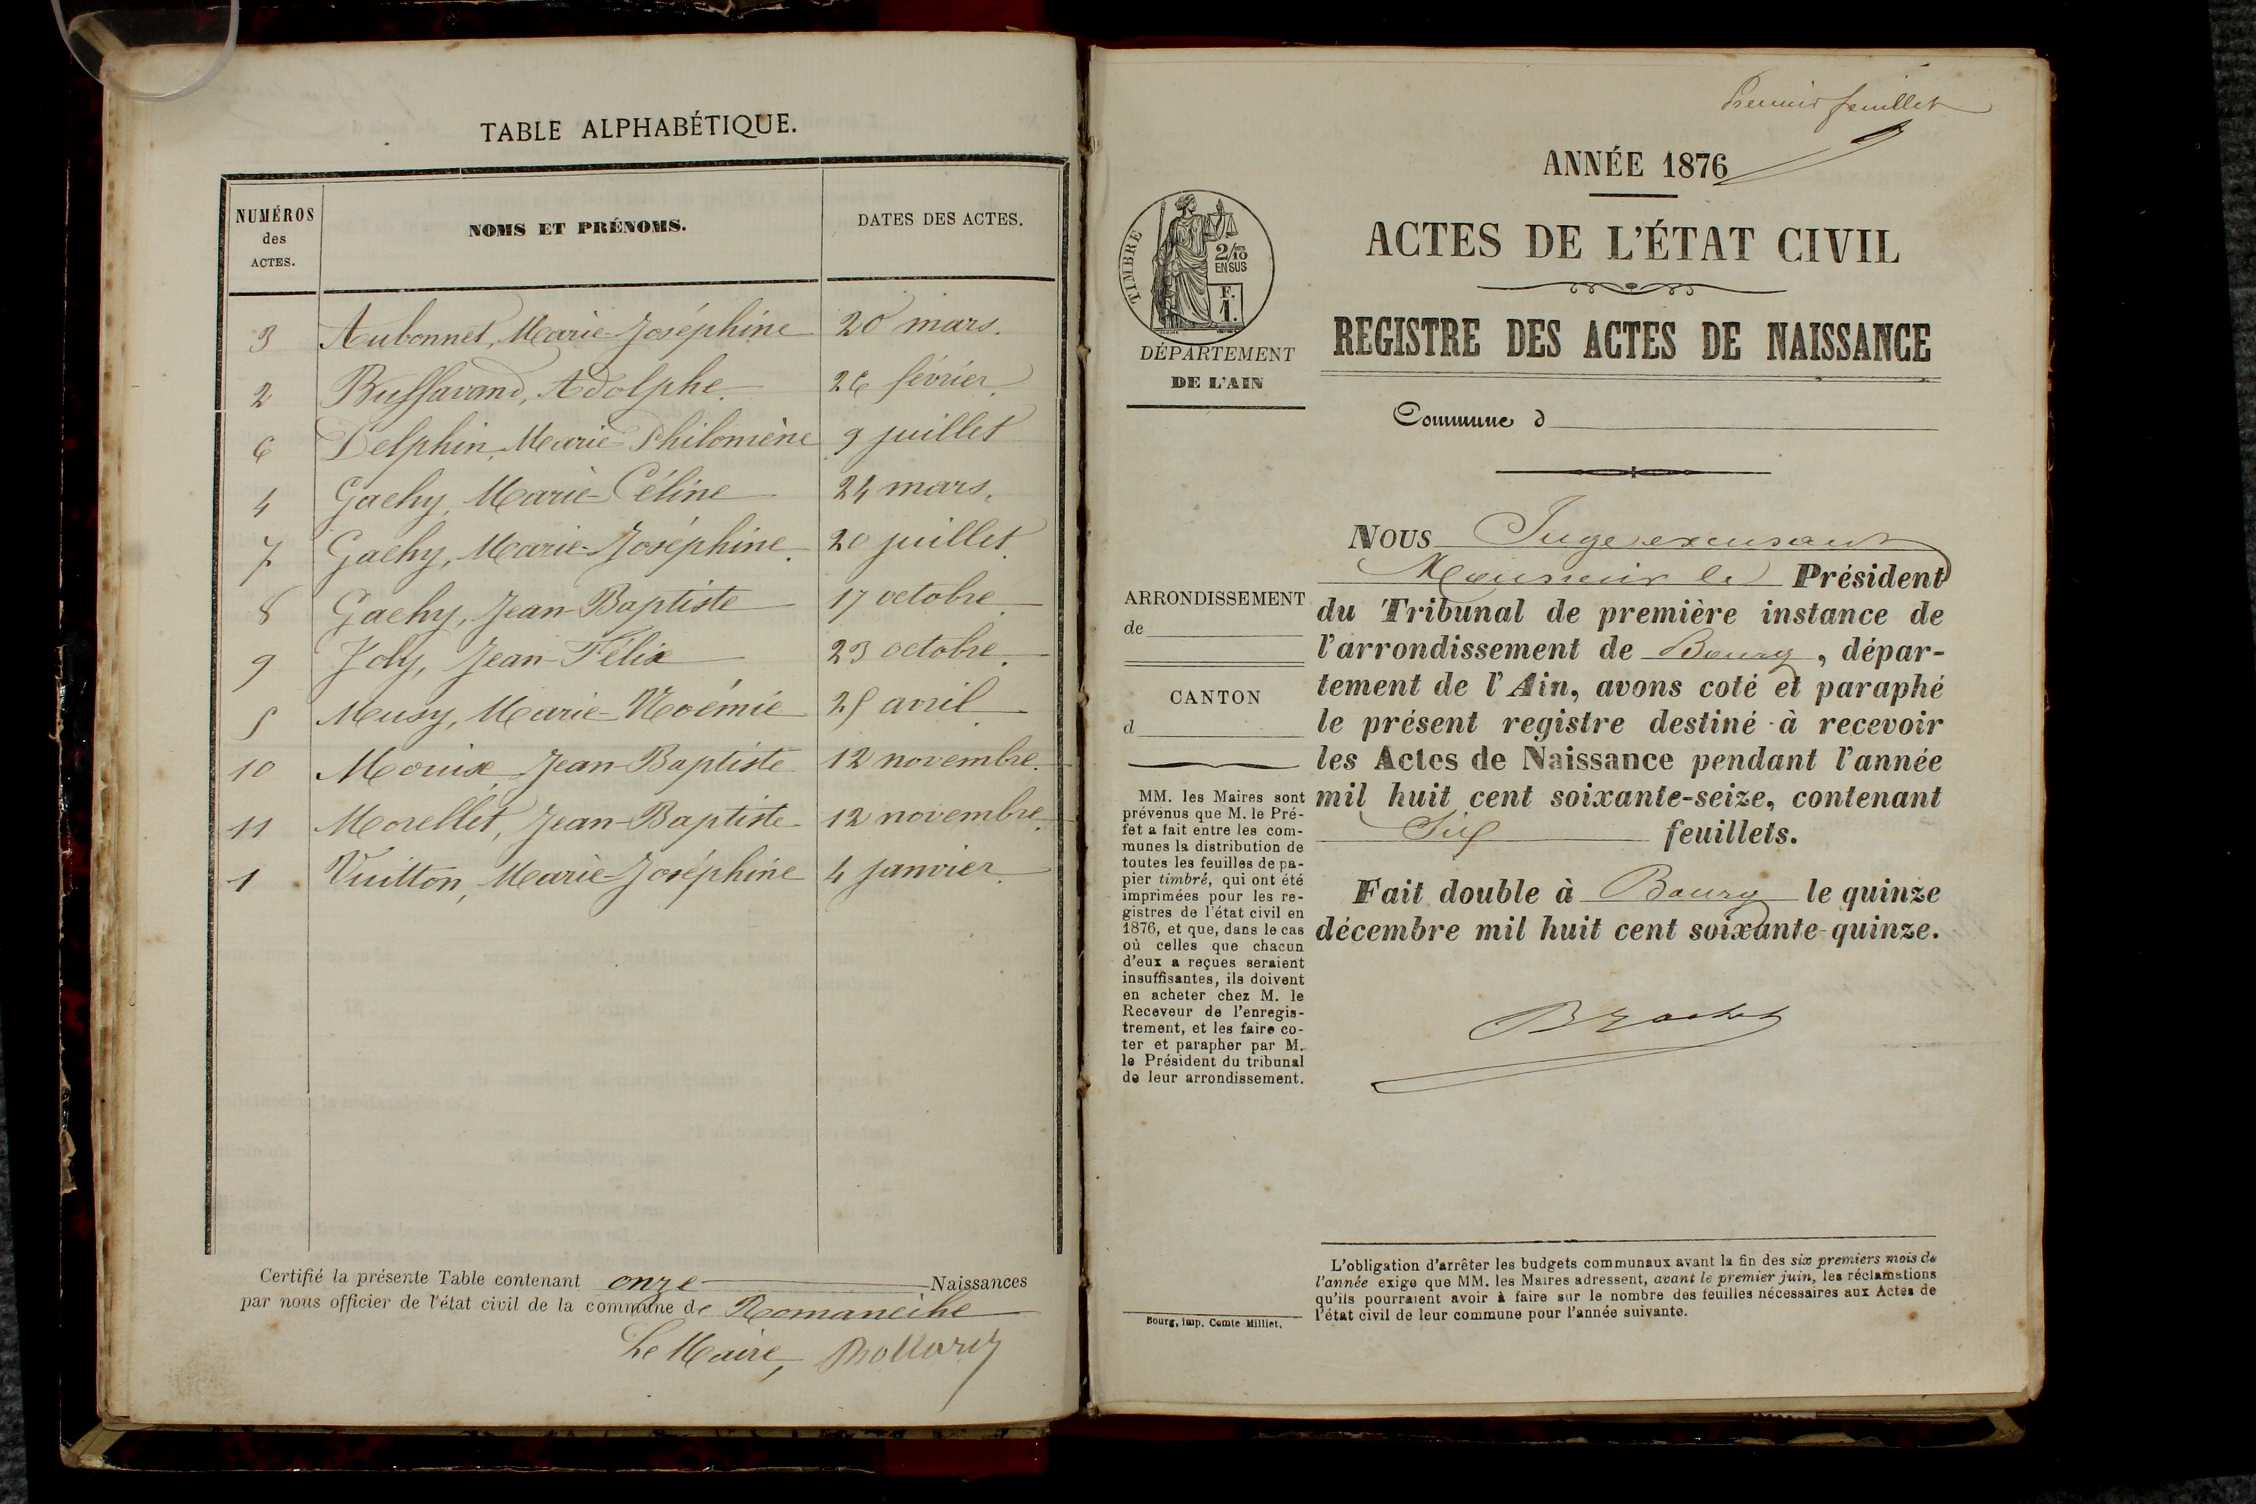 TABLE ALPHABÉTIQUE.
NUMÉROS
des
ACTES.
NOMS ET PRÉNOMS.
DATES DES ACTES.
3 Aubonnet, Marie-Joséphine 20 mars.
2 Buffavand, Adolphe. 26 février.
6 Delphin, Marie Philomène 9 juillet
4 Gachy, Marie-Céline 24 mars.
7 Gachy, Marie-Joséphine. 20 juillet.
8 Gachy, Jean-Baptiste 17 octobre.
9 Joly, Jean-Félix 23 octobre.
5 Musy, Marie-Noémie 25 avril.
10 Jean-Baptiste 12 novembre.
11 Morellet, Jean-Baptiste 12 novembre.
1 Vuitton, Marie-Joséphine 4 janvier.
Certifié la présente Table contenant onze Naissances
par nous officier de l'état civil de la commune de Romanèche
Le Maire,
Premier feuillet
ANNÉE 1876
ACTES DE L'ÉTAT CIVIL
REGISTRE DES ACTES DE NAISSANCE
TIMBRE
2/10
EN SUS
F.
1.
DÉPARTEMENT
DE L'AIN
Commune d
ARRONDISSEMENT
de
CANTON
d
MM. les Maires sont
prévenus que M. le Pré-
fet a fait entre les com-
munes la distribution de
toutes les feuilles de pa-
pier timbré, qui ont été
imprimées pour les re-
gistres de l'état civil en
1876, et que, dans le cas
où celles que chacun
d'eux a reçues seraient
insuffisantes, ils doivent
en acheter chez M. le
Receveur de l'enregis-
trement, et les faire co-
ter et parapher par M.
le Président du tribunal
de leur arrondissement.
Bourg, imp. Comte-Milliet.
NOUS Juge excusant
Monsieur le Président
du Tribunal de première instance de
l'arrondissement de Bourg, dépar-
tement de l'Ain, avons coté et paraphé
le présent registre destiné à recevoir
les Actes de Naissance pendant l'année
mil huit cent soixante-seize, contenant
Six feuillets.
Fait double à Bourg le quinze
décembre mil huit cent soixante-quinze.
L'obligation d'arrêter les budgets communaux avant la fin des six premiers mois de
l'année exige que MM. les Maires adressent, avant le premier juin, les réclamations
qu'ils pourraient avoir à faire sur le nombre des feuilles nécessaires aux Actes de
l'état civil de leur commune pour l'année suivante.